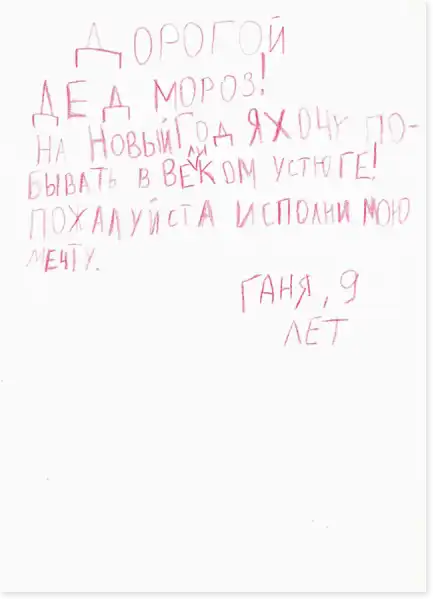 ДОРОГОЙ
ДЕД МОРОЗ!
НА НОВЫЙ ГОД Я ХОЧУ ПО-
БЫВАТЬ В ВЕЛИКОМ УСТЮГЕ!
ПОЖАЛУЙСТА ИСПОЛНИ МОЮ
МЕЧТУ.
ГАНЯ, 9
ЛЕТ